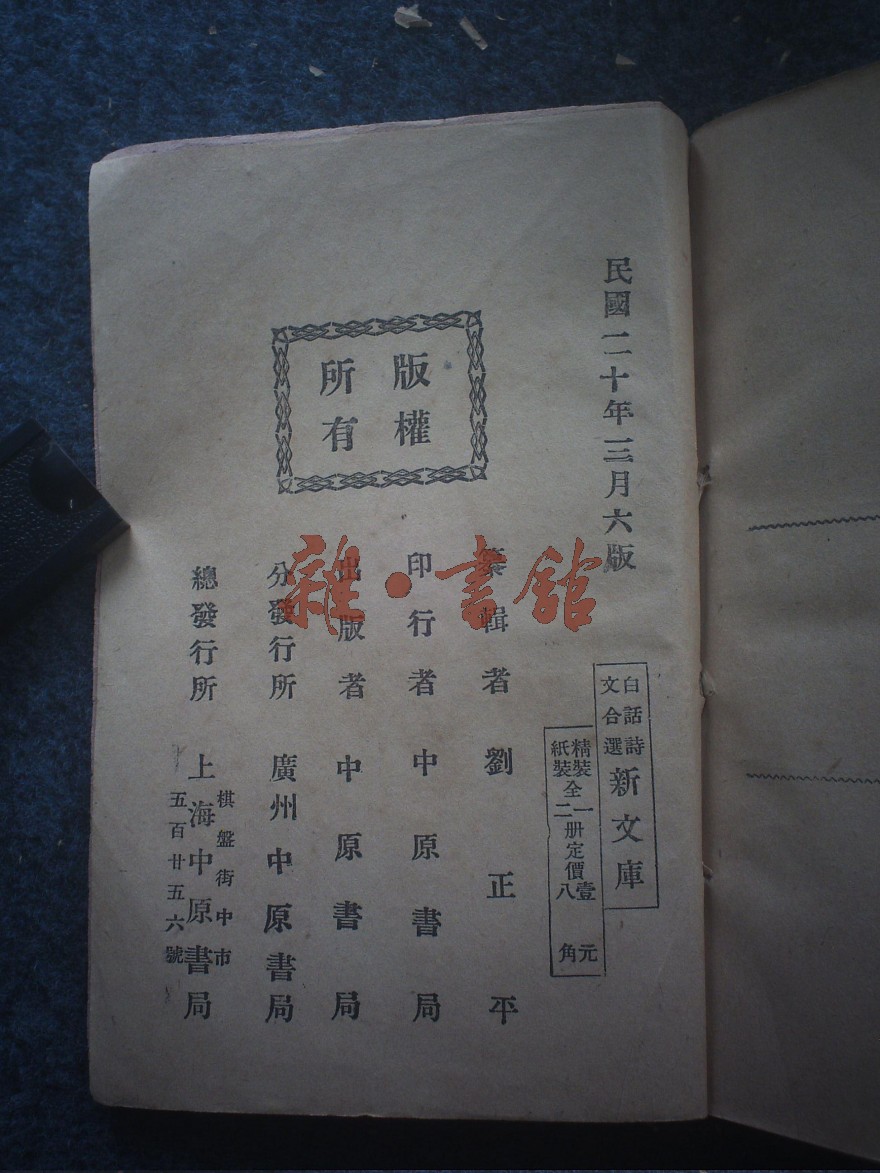 民國二十年三月六版
白話詩
文合選
新文庫
精裝全一册定價壹元
紙裝全二册定價八角
版權
所有
纂輯者劉正平
印行者中原書局
出版者中原書局
分發行所廣州中原書局
總發行所上海中原書局
棋盤街中市
五百廿五六號
雜·書館